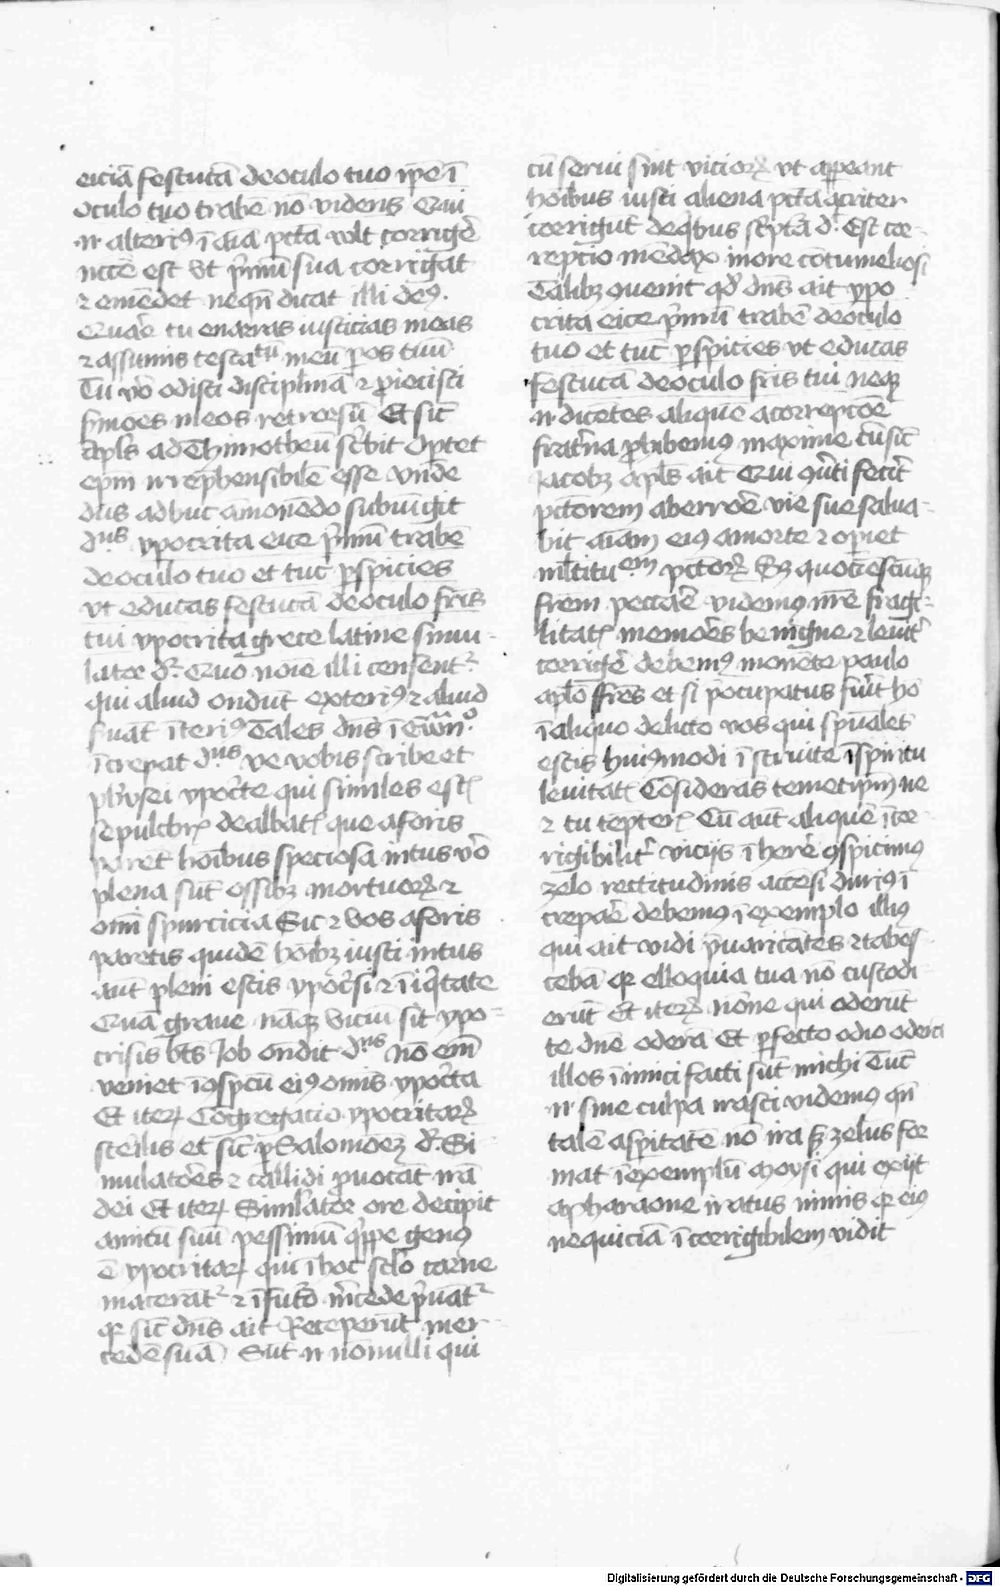 eiciā festucā de oculo tuo ip̄e ī
oculo tuo trabē nō videns Qui
.n. alteriꝰ ī aīa pctā vult corrigē
n̄cce est vt p̄mū sua corrigat
⁊ emēdet neqn̄ dicat illi deꝰ.
Quare tu enarras iusticias meas
⁊ assumis testatū meū p os tuū
Tu vō odisti disciplinā ⁊ p̄iecisti
s̄mōes meos retrorsū Et sic̄
apl̄s ad Thimotheū sc̄bit Optet
ep̄m irrep̄hensibilē esse vnde
dn̄s adhuc āmonēdo subiūgit
dn̄s ypocrita eice p̄mū trabē
de oculo tuo et tūc p̄spicies
vt educas festucā de oculo fr̄is
tui ypocrita grece latine simu-
lator dr̄. Quo noīe illi censent̄
qui aliud ondūt exteriꝰ ⁊ aliud
s̄uāt īteriꝰ Tales dn̄s ī Ewan°
īcrepat dn̄s ve vobis scribe et
ph̄risei ypoc̄te qui similes est
sepulchr dealbat que a foris
paret hoībus speciosa intus vō
plena sūt ossibꝫ mortuoꝝ ⁊
om̄i spurcicia Sic ⁊ vos a foris
paretis quidē hoībꝫ iusti intus
aut̄ pleni estis ypoc̄si ⁊ īiq̄tate
Quā graue nāqꝫ viciū sit ypo-
crisis bt̄s Job ōndit dn̄s nō em̄
veniet ī ꝯspc̄tu eiꝰ omīs ypoc̄ta
Et iteꝝ Cōgregacio ypocritaꝝ
sterilis et sic̄ p Salomoēꝫ dr̄. Si
mulatōes ⁊ callidi p̄uocāt irā
dei Et iteꝝ Simulator ore decipit
amicū suū pessimū q̄ppe genꝰ
ē ypocritaꝝ qui ī hoc sclō carne
macerāt ⁊ ī fut̄o m̄cede p̄uāt
qꝛ sic̄ dn̄s ait Receperūt mer-
cedē suā Sūt .n. nōnulli qui
cū serui sint vicioꝝ vt appeant
hoībus iusti aliena pctā acriter
corrigūt de qbus sc̄ptā d. Est cor-
repcio mēdax in ore cōtumeliosi
Talibꝫ ꝯuenit qd̄ dn̄s ait ypo
crita eice p̄mū trabē de oculo
tuo et tūc p̄spicies vt educas
festucā de oculo fr̄is tui neqꝫ
.n. dicētes aliquē a correpcōe
frat̄na p̄hibemꝰ maxime cū sic̄
Jacobꝫ apl̄s ait Qui ꝯūti fec̄it
pctōrem ab errore vie sue salua-
bit aīam eiꝰ a morte ⁊ opiet
ml̄tituem pctōꝝ Sꝫ quociēscūqꝫ
frem peccare videmꝰ nr̄e fragi-
litat memores benigne ⁊ leuit̄
corrigē debemꝰ monēte paulo
aplō fr̄es et si p̄ocupatus fūit hō
ī aliquo delicto vos qui spūales
estis huiꝰmodi īstruite ī spiritu
leuitat Cōsiderās temetipm̄ ne
⁊ tu tepter Cū aut̄ aliquē īcor
rigibilit̄ vicijs īherē ꝯspicimꝰ
zelo rectitudinis accēsi duriꝰ ī
crepare debemꝰ ī exemplo illiꝰ
qui ait vidi p̄uaricātes ⁊ tabes
cebā qꝛ elloquia tua nō custodi
erūt Et iteꝝ nōne qui oderūt
te dn̄e oderā Et p̄fecto odio oderā
illos īimici facti sūt michi Tūc
.n. sine culpa irasci videmꝰ qn̄
talē aspitatē nō ira sꝫ zelus for
mat ī exemplū Moysi qui exijt
a pharaone iratus nimis qꝛ eiꝰ
nequiciā īcorrigibilem vidit
Digitalisierung gefördert durch die Deutsche Forschungsgemeinschaft - DFG